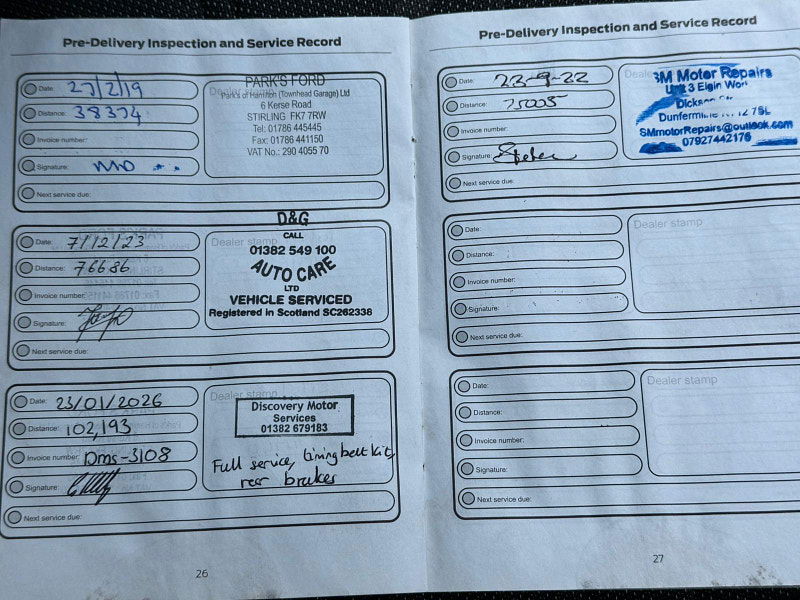 Pre-Delivery Inspection and Service Record
Date: 27/2/19
Distance: 38374
Invoice number:
Signature:
Next service due:
Dealer stamp
PARK'S FORD
Park's of Hamilton (Townhead Garage) Ltd
6 Kerse Road
STIRLING FK7 7RW
Tel: 01786 445445
Fax: 01786 441150
VAT No.: 290 4055 70
Date: 7/12/23
Distance: 76686
Invoice number:
Signature:
Next service due:
Dealer stamp
D&G
CALL
01382 549 100
AUTO CARE
LTD
VEHICLE SERVICED
Registered in Scotland SC262338
Date: 23/01/2026
Distance: 102,193
Invoice number: Dms-3108
Signature:
Next service due:
Dealer stamp
Discovery Motor
Services
01382 679183
Full service, timing belt kit,
rear brakes
26
Pre-Delivery Inspection and Service Record
Date: 23-9-22
Distance: 75005
Invoice number:
Signature:
Next service due:
SM Motor Repairs
Unit 3 Elgin
Dunfermline 7SL
SMmotorRepairs@outlook.com
07927442176
Date:
Distance:
Invoice number:
Signature:
Next service due:
Dealer stamp
Date:
Distance:
Invoice number:
Signature:
Next service due:
Dealer stamp
27